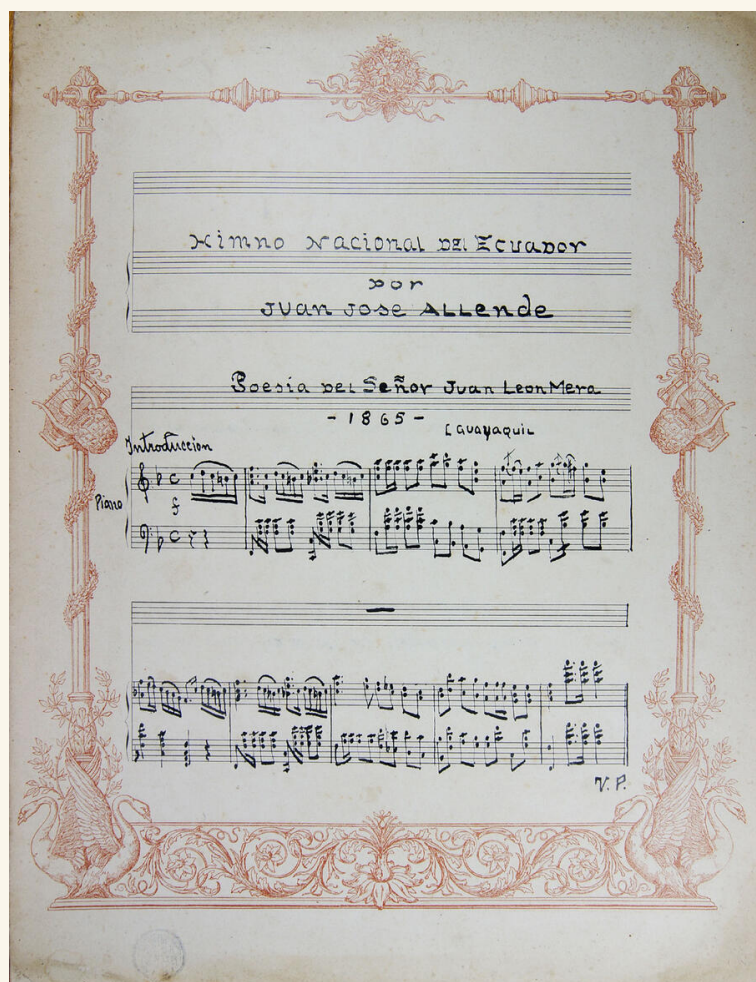 Himno Nacional del Ecuador
por
Juan Jose Allende
Poesia del Señor Juan Leon Mera
- 1865 -
Guayaquil
Introduccion
Piano
f
V. P.